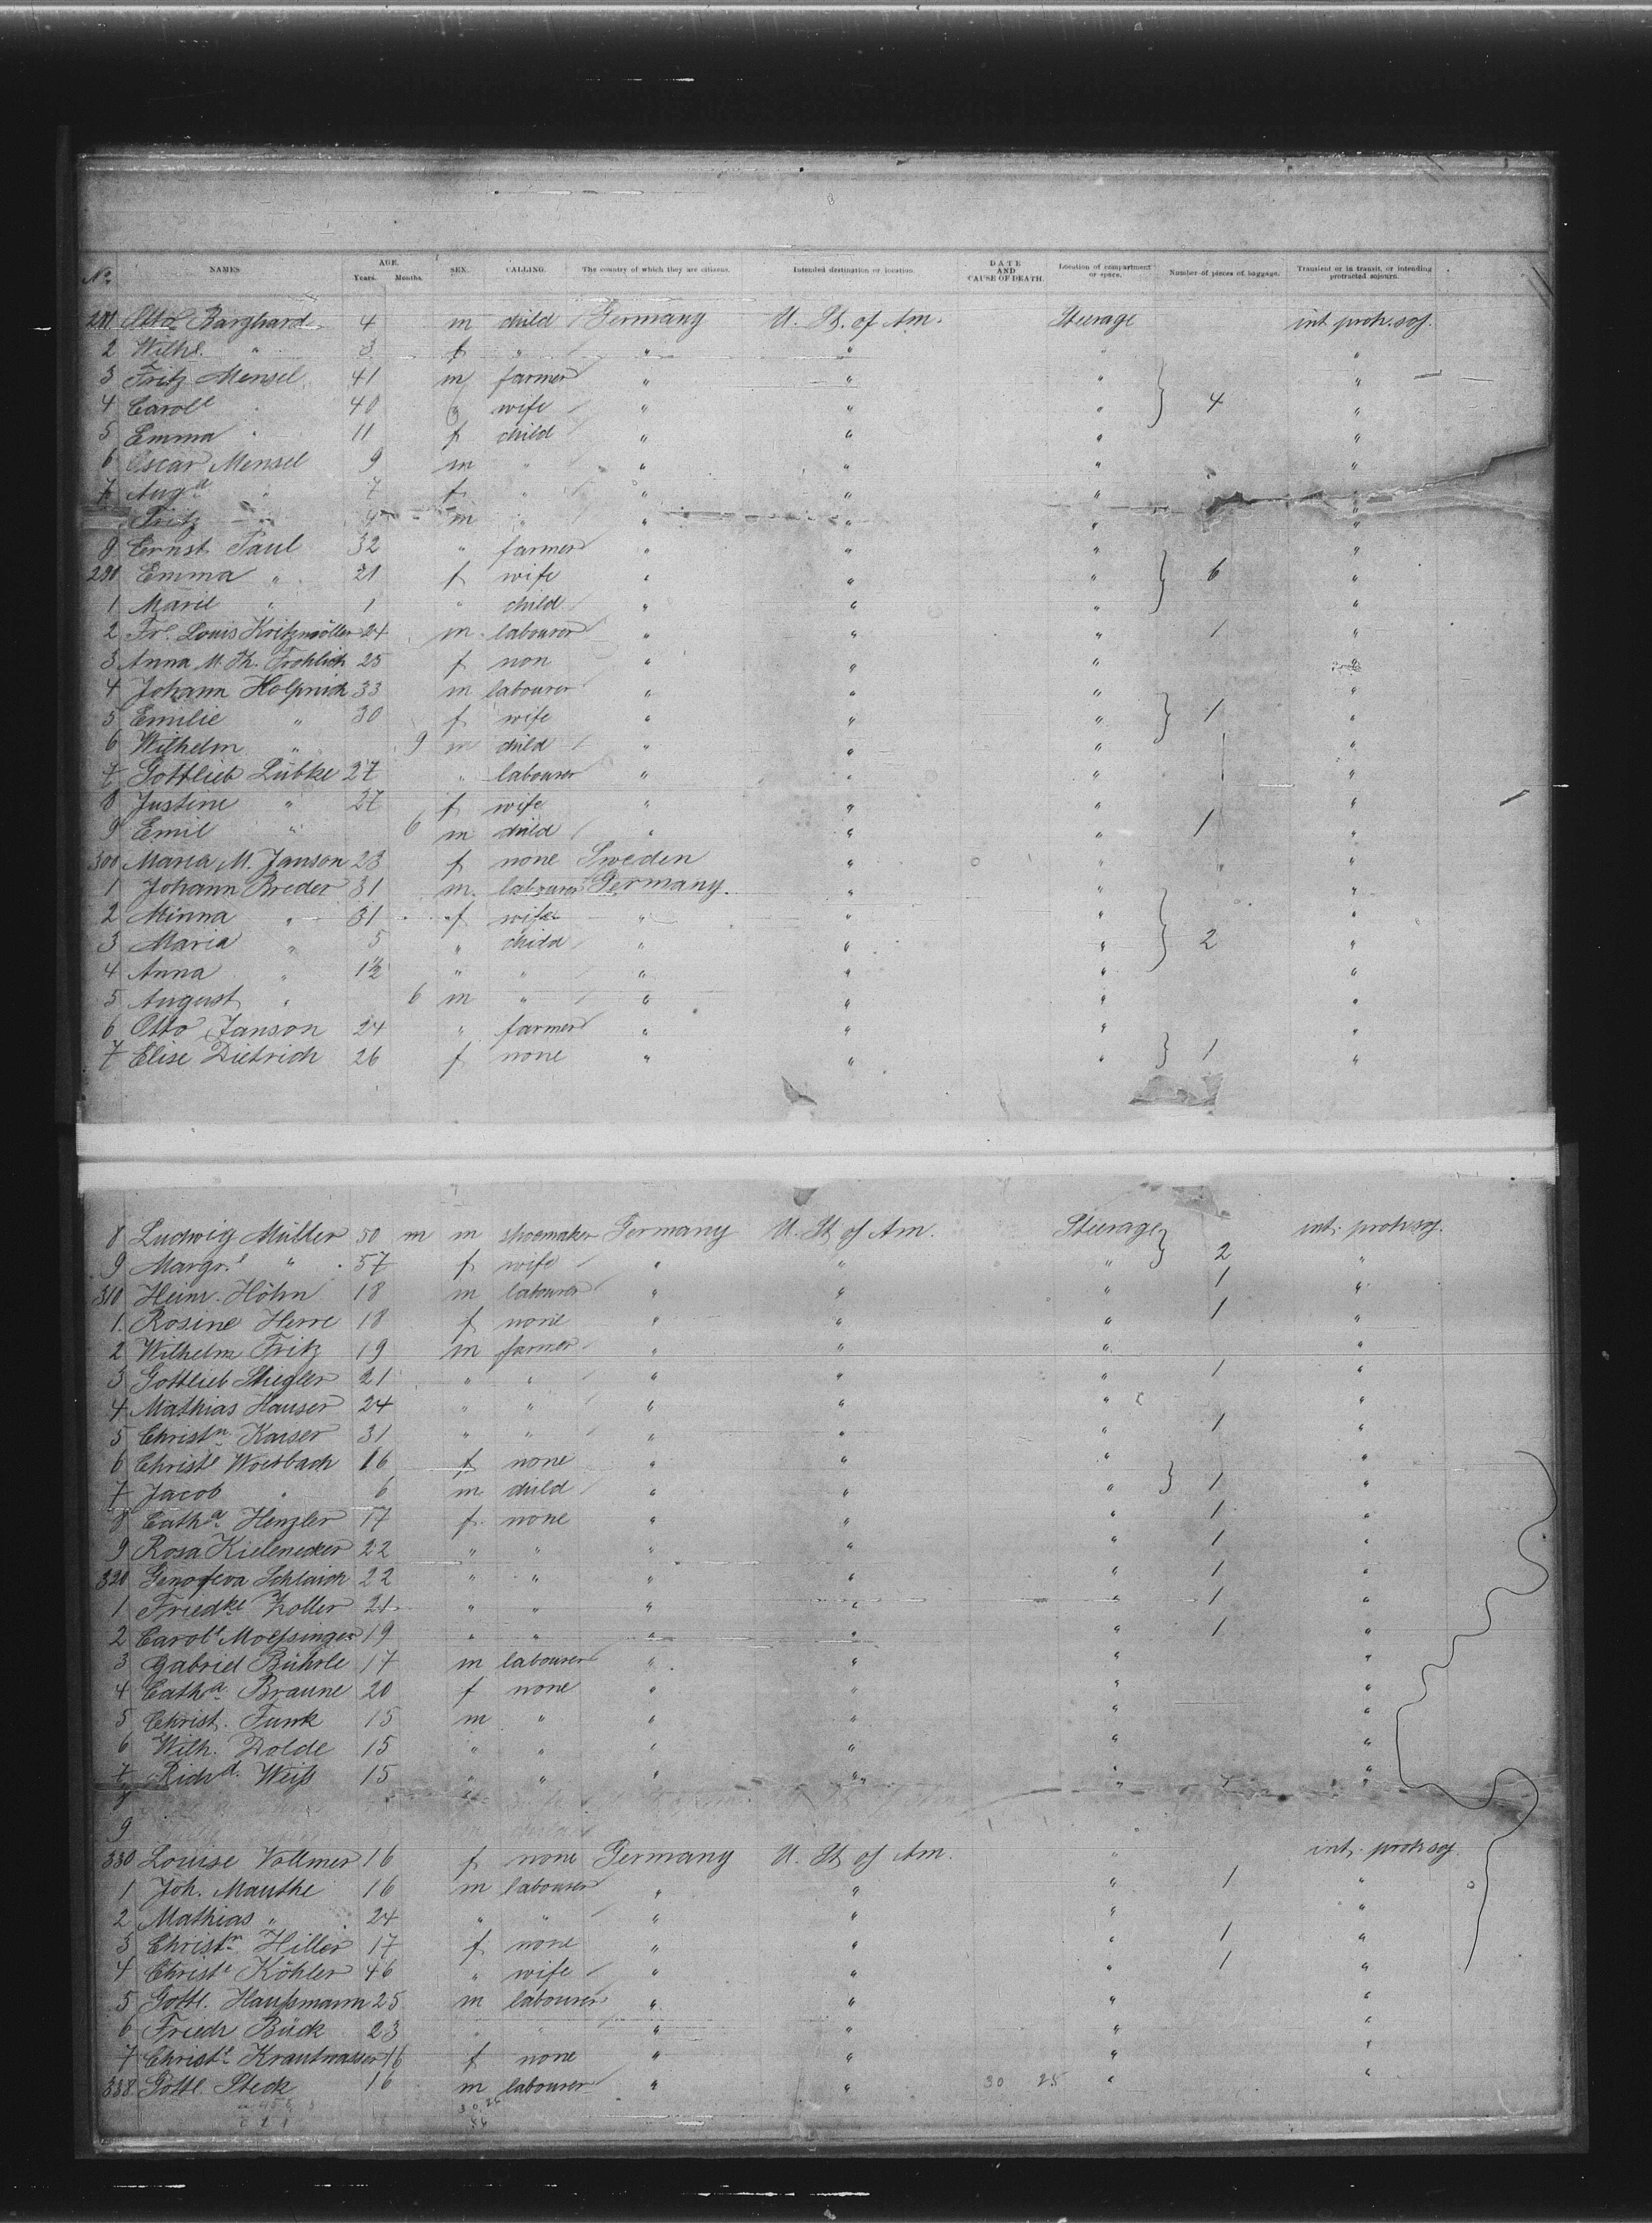 No. NAMES AGE. Years. Months. SEX. CALLING. The country of which they are citizens. Intended destination or location. DATE AND CAUSE OF DEATH. Location of compartment or space. Number of pieces of baggage. Transient or in transit, or intending protracted sojourn.
281 Otto Barghard 4 m child Germany U. St. of Am. Steerage int. protr. soj.
2 Wilhe. " 3 f " " " " "
3 Fritz Mensel 41 m farmer " " " "
4 Carole " 40 f wife " " " 4 "
5 Emma " 11 f child " " " "
6 Oscar Mensel 9 m " " " " "
7 Auga " 7 f " " " " "
Fritz " m " " " " "
9 Ernst Paul 32 " farmer " " " "
290 Emma " 21 f wife " " " 6 "
1 Marie " 1 " child " " " "
2 Fr. Louis Kritzmöller 24 m labourer " " " 1 "
3 Anna M. Th. Frohlich 25 f non " " " "
4 Johann 33 m labourer " " " "
5 Emilie " 30 f wife " " " 1 "
6 Wilhelm " 9 m child " " " "
7 Gottlieb Lübke 27 " labourer " " " "
8 Justine " 27 f wife " " " "
9 Emil " 6 m child " " " 1 "
300 Maria M. Janson 23 f none Sweden " " "
1 Johann Breder 31 m labourer Germany. " " "
2 Minna " 31 f wife " " " "
3 Maria " 5 " child " " " 2 "
4 Anna " 1½ " " " " " "
5 August " 6 m " " " " "
6 Otto Janson 24 " farmer " " " "
7 Elise Dietrich 26 f none " " " 1 "
8 Ludwig Müller 50 m m shoemaker Germany U. St. of Am. Steerage int. protr. soj.
9 Margre. " 57 f wife " " " 2 "
310 Heinr. Höhn 18 m labourer " " " 1 "
1 Rosine Herre 18 f none " " " 1 "
2 Wilhelm Fritz 19 m farmer " " " "
3 Gottlieb Stiegler 21 " " " " " 1 "
4 Mathias Hauser 24 " " " " " "
5 Christn. Kaiser 31 " " " " " 1 "
6 Christe Woesbach 16 f none " " " "
7 Jacob " 6 m child " " " 1 "
8 Catha. Henzler 17 f none " " " 1 "
9 Rosa Kielenecker 22 " " " " " 1 "
320 Genofeva Schlaich 22 " " " " " 1 "
1 Friedke Koller 21 " " " " " 1 "
2 Carole Moessinger 19 " " " " " 1 "
3 Gabriel Bührle 17 m labourer " " " "
4 Catha. Braune 20 f none " " " "
5 Christ. Funk 15 m " " " " "
6 Wilh. Dolde 15 " " " " " "
7 Richd. Weiß 15 " " " " " "
9
330 Louise Vollmer 16 f none Germany U. St. of Am. " int. protr. soj.
1 Joh. Mauthe 16 m labourer " " " 1 "
2 Mathias " 24 " " " " " "
3 Christn. Hiller 17 f none " " " 1 "
4 Christe Köhler 46 " wife " " " 1 "
5 Gottl. Haußmann 25 m labourer " " " "
6 Friedr Bück 23 " " " " " "
7 Christe. 16 f none " " " "
338 Gottl. Steck 16 m labourer " " 30 25 " "